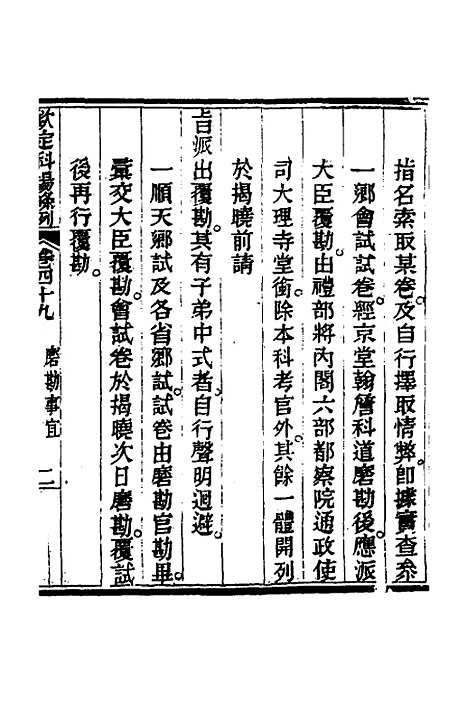 指名索取某卷及自行擇取情弊卽據實查叅
一鄉會試試卷經京堂翰詹科道磨勘後應派
大臣覆勘由禮部將內閣六部都察院通政使
司大理寺堂銜除本科考官外其餘一體開列
於揭曉前請
旨派出覆勘其有子弟中式者自行聲明迴避
一順天鄉試及各省鄉試試卷由磨勘官勘畢
彙交大臣覆勘會試卷於揭曉次日磨勘覆試
後再行覆勘
欽定科場條例 卷四十九 磨勘事宜 二